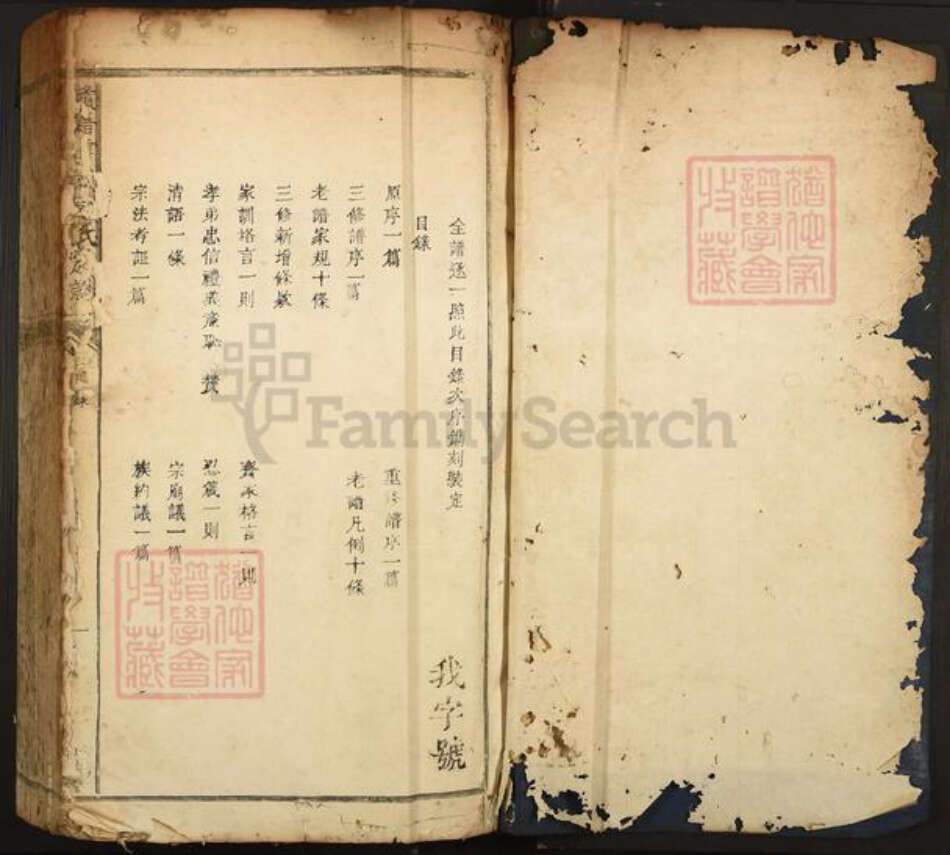 全譜逐一照此目錄次序鐫刻裝定
我字號
目錄
原序一篇
重修譜序一篇
三修譜序一篇
老譜凡例十條
老譜家規十條
三修新增條款
家訓格言一則
齊家格言一則
孝弟忠信禮義廉恥 贊
忍箴一則
清語一條
宗廟議一篇
宗法考証一篇
族約議一篇
氏
目錄
譜學會
收藏
譜學會
收藏
FamilySearch